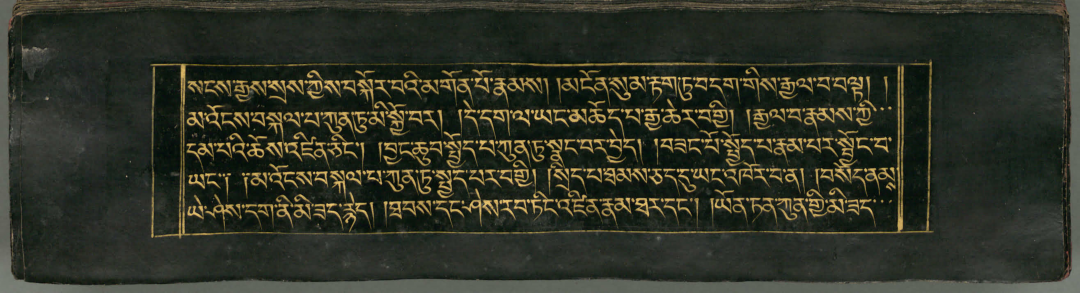 སངས་རྒྱས་སྲས་ཀྱིས་བསྐོར་བའི་མགོན་པོ་རྣམས། །མངོན་སུམ་རྟག་ཏུ་བདག་གིས་རྒྱལ་བ་བལྟ། །
མ་འོངས་བསྐལ་པ་ཀུན་ཏུ་མི་སྐྱོ་བར། །དེ་དག་ལ་ཡང་མཆོད་པ་རྒྱ་ཆེར་བགྱི། །རྒྱལ་བ་རྣམས་ཀྱི་
དམ་པའི་ཆོས་འཛིན་ཅིང་། །བྱང་ཆུབ་སྤྱོད་པ་ཀུན་ཏུ་སྣང་བར་བྱེད། །བཟང་པོ་སྤྱོད་པ་རྣམ་པར་སྦྱོང་བ་
ཡང་། །མ་འོངས་བསྐལ་པ་ཀུན་ཏུ་སྤྱད་པར་བགྱི། །སྲིད་པ་ཐམས་ཅད་དུ་ཡང་འཁོར་བ་ན། །བསོད་ནམས་
ཡེ་ཤེས་དག་ནི་མི་ཟད་རྙེད། །ཐབས་དང་ཤེས་རབ་ཏིང་འཛིན་རྣམ་ཐར་དང་། །ཡོན་ཏན་ཀུན་གྱི་མི་ཟད་